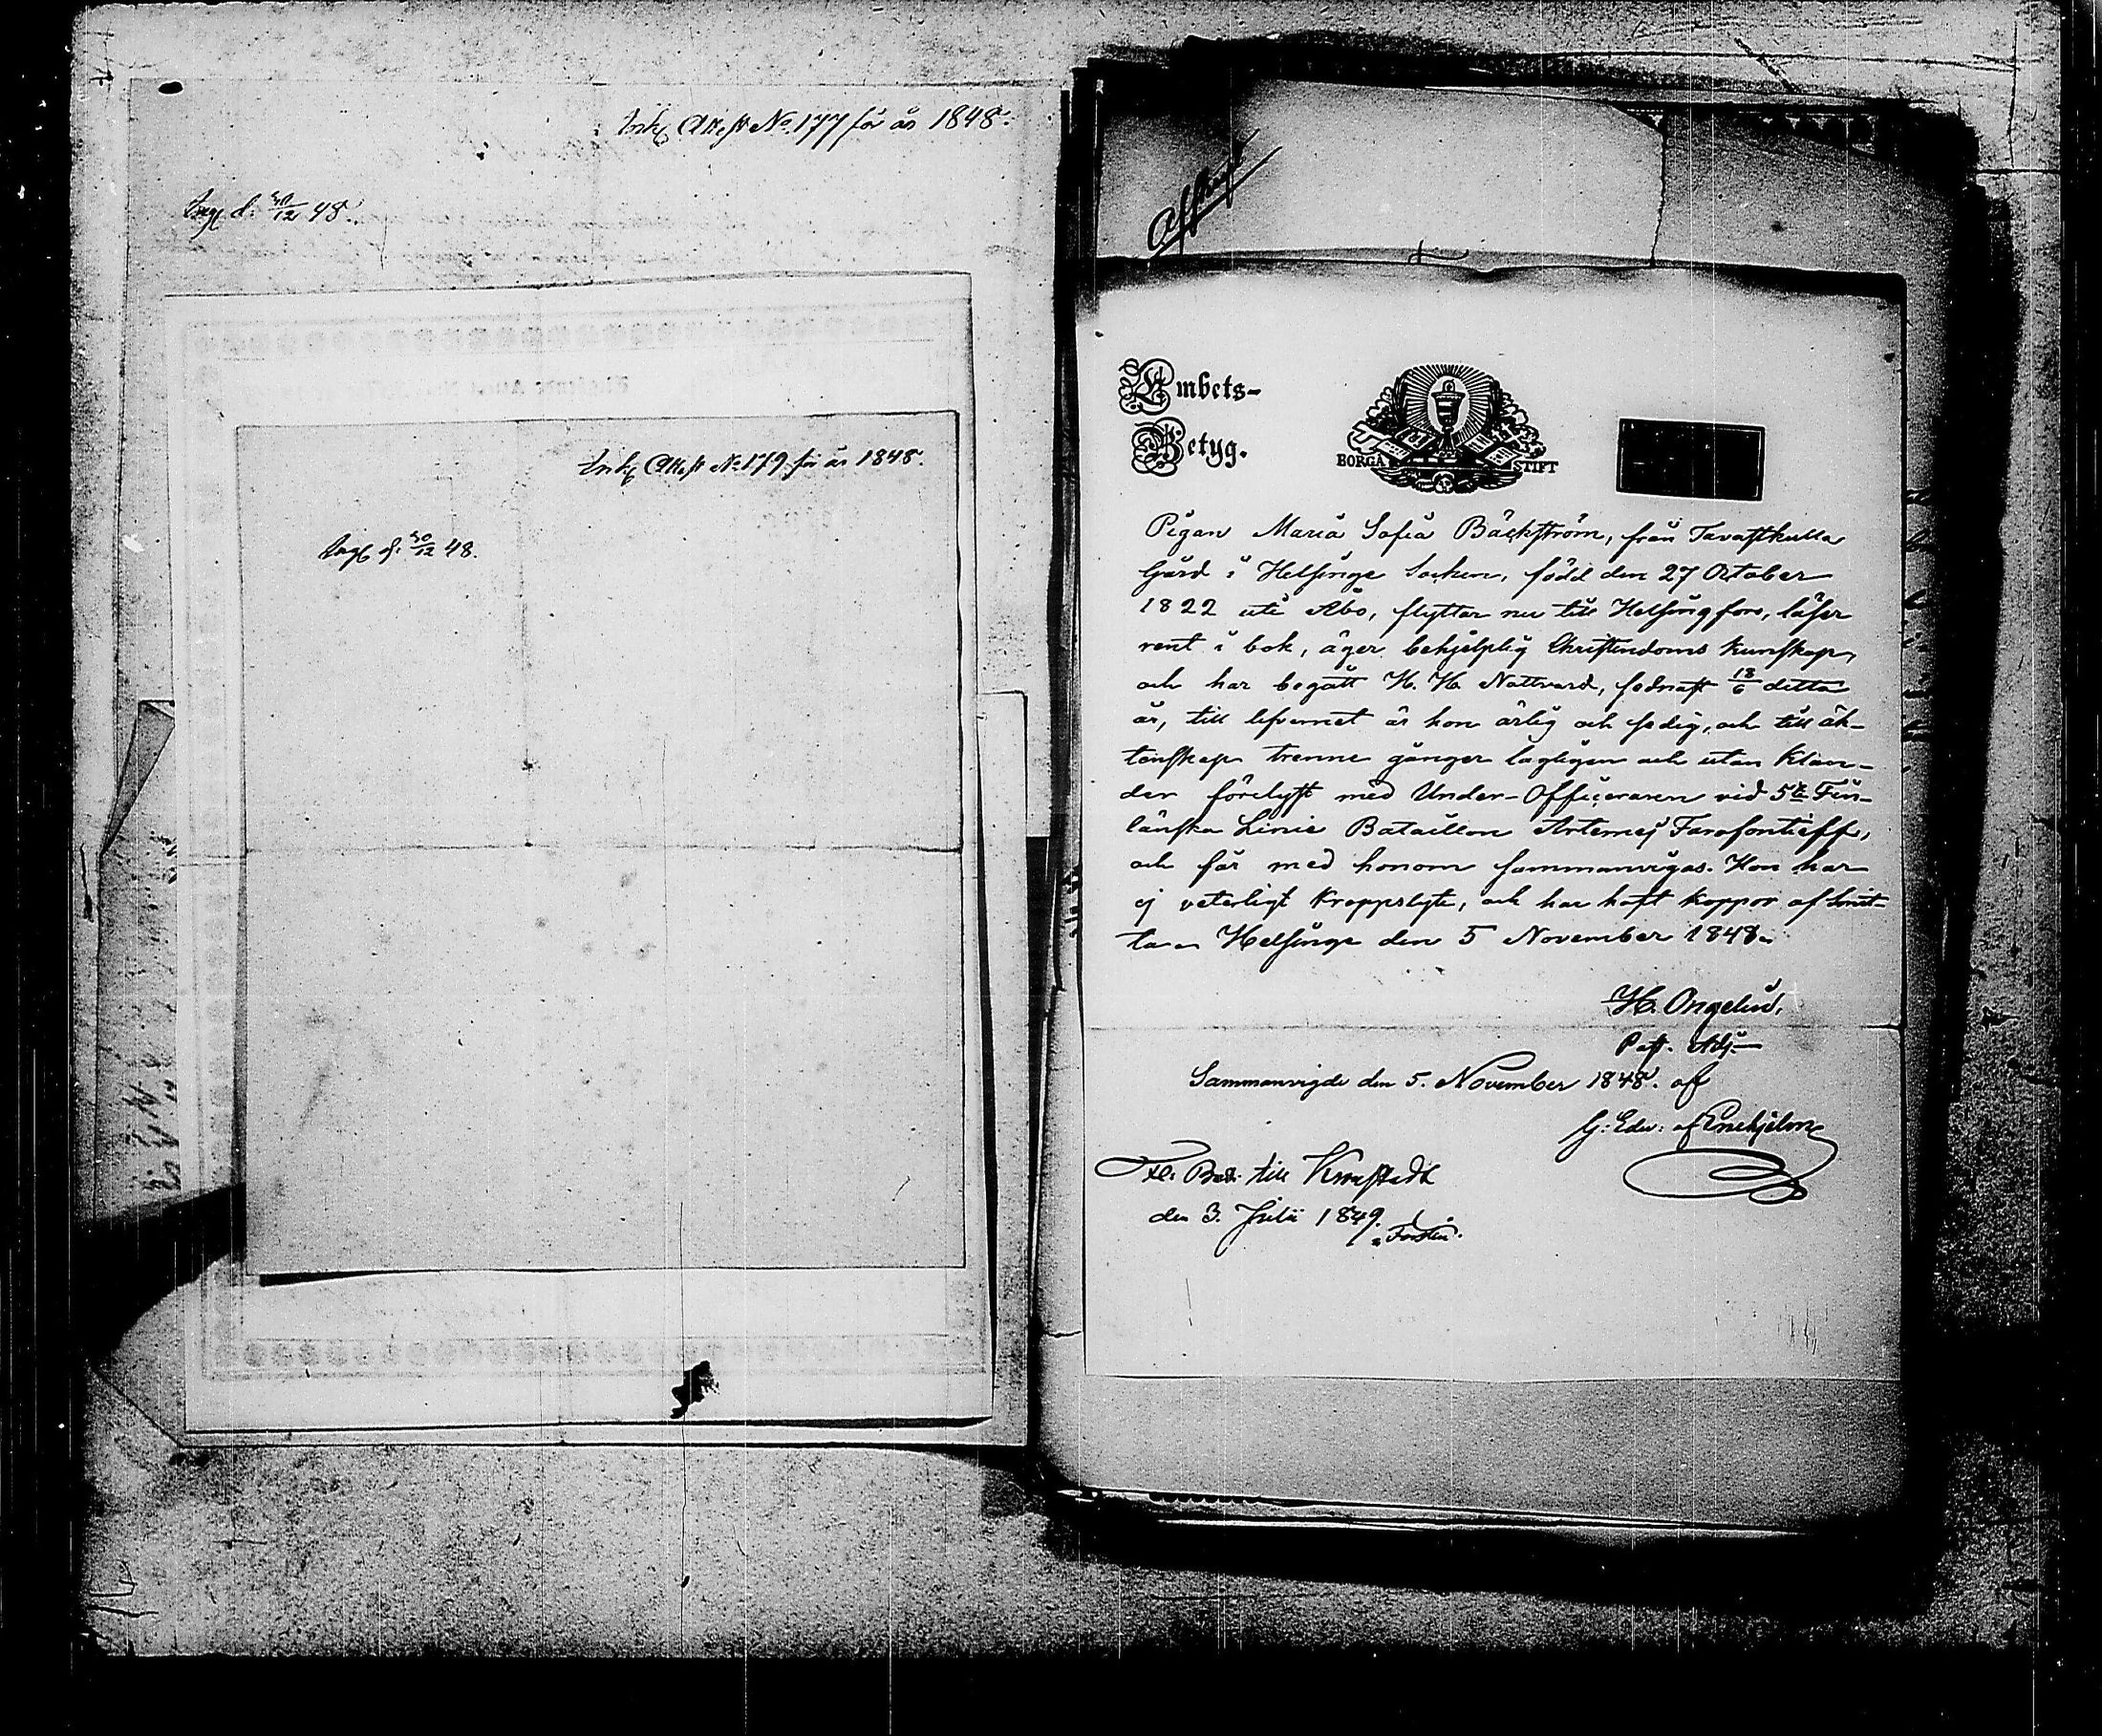 Ink Attest No. 177 för år 1848.
Ingf d. 30/12 48.
Ink Attest No 179 för år 1848.
Ingf d. 30/12 48.
Embets-
Betyg.
BORGÅ STIFT
Pigan Maria Sofia Bäckström, från Tavastkulla
Gård i Helsinge Socken, född den 27 October
1822 uti Åbo, flyttar nu till Helsingfors, läser
rent i bok, äger behjelplig Christendoms kunskap,
och har begått H. H. Nattvard, sednast 18/6 detta
år, till lefvernet är hon ärlig och sedig, och till äk-
tenskap trenne gånger lagligen och utan klan-
der förelyst med Under-Officeraren vid 5te Fin-
länska Linie Bataillon Artemej Farafontieff,
och får med honom sammanvigas. Hon har
ej veterligt kroppslyte, och har haft koppor af smit-
ta. Helsinge den 5 November 1848.
H. Ongelin.
Past. Adj.
Sammanvigde den 5. November 1848. af
G: Edv: af Enehjelm
Fl. Bet. till Kronstadt
den 3. Julii 1849.
Forstén.